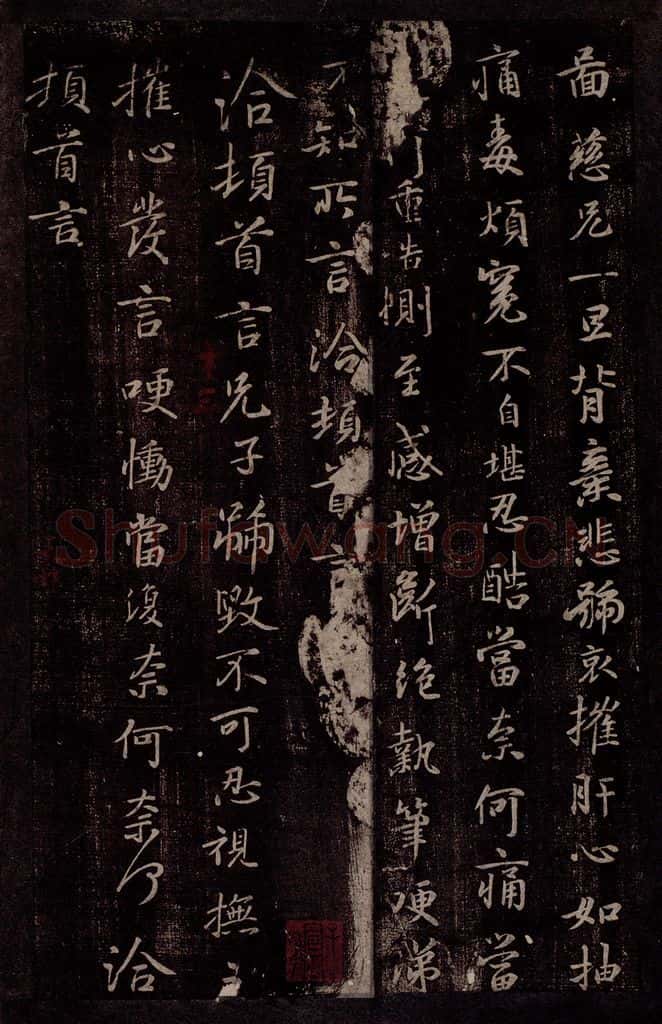 啚慈兄一旦背棄悲號哀摧肝心如抽
痛毒煩冤不自堪忍酷當奈何痛當
重告惻至感增斷絕執筆哽涕
不知所言洽頓首言
洽頓首言兄子號毀不可忍視撫
摧心發言哽慟當復奈何奈何洽
頓首言
Shufawang.CN